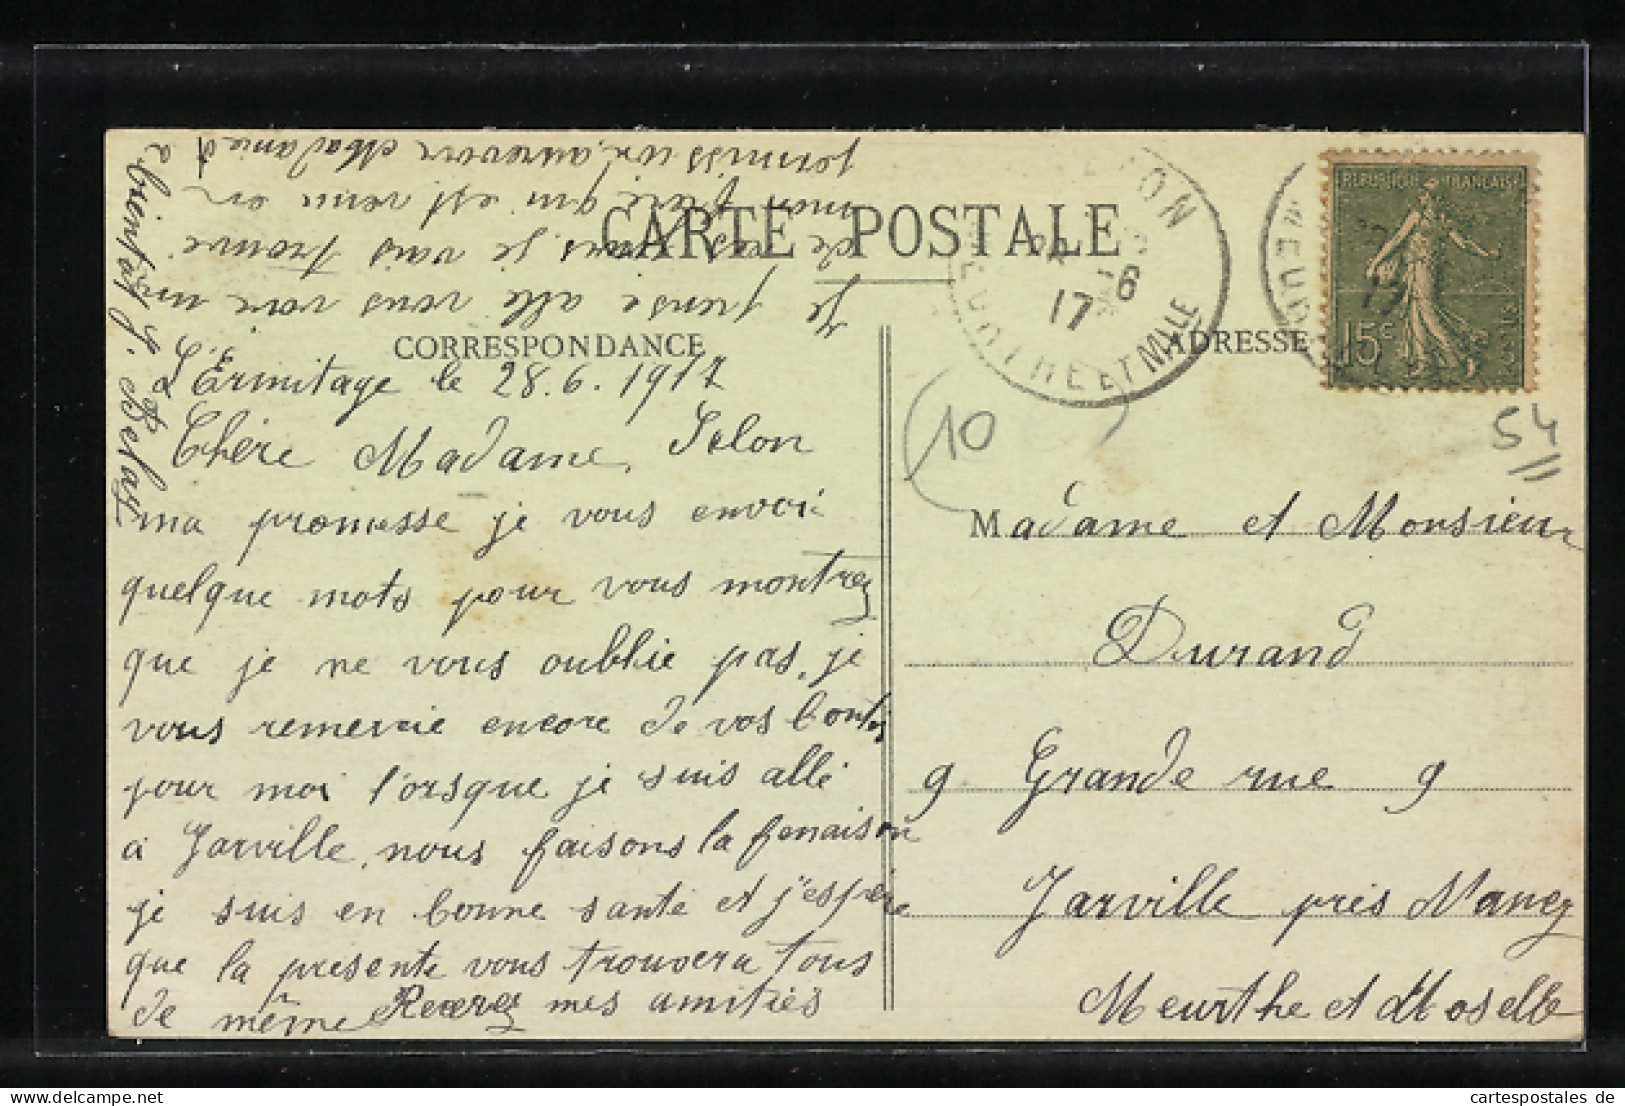 CARTE POSTALE
CORRESPONDANCE
ADRESSE
L'Ermitage le 28.6.1917
Chère Madame, Selon
ma promesse je vous envoi
quelque mots pour vous montrez
que je ne vous oublie pas, je
vous remercie encore de vos bontés
pour moi lorsque je suis allé
à Jarville, nous faisons la fenaison
je suis en bonne santé et j'espère
que la présente vous trouvera tous
de même Recevez mes amitiés
Je pense allé vous voir un
de ces jours, je vais trouvé
mon frère qui est venu en
permission, aurevoir Madame et
a bientôt J.
Madame et Monsieur
Durand
9 Grande rue 9
Jarville près Nancy
Meurthe et Moselle
REPUBLIQUE FRANÇAISE
15c
17
6
ET MLLE
10
54
www.cartes-postales.delcampe.net
cartespostales de